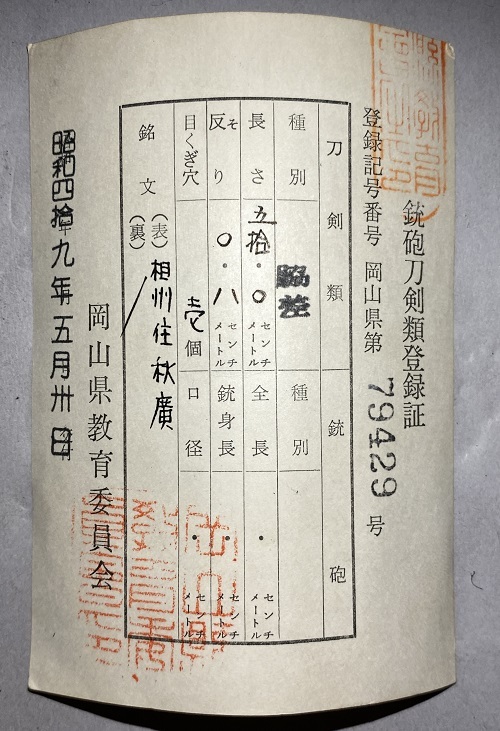 銃砲刀剣類登録証
登録記号番号 岡山県第 79429 号
刀剣類 銃砲
種別 脇差 種別
長さ 五拾・〇 センチメートル 全長 ・ センチメートル
反り そ 〇・八 センチメートル 銃身長 ・ センチメートル
目くぎ穴 壱個 口径 ・ センチメートル
銘文 (表) 相州住秋廣
(裏)
岡山県教育委員会
昭和四拾九年五月卅日